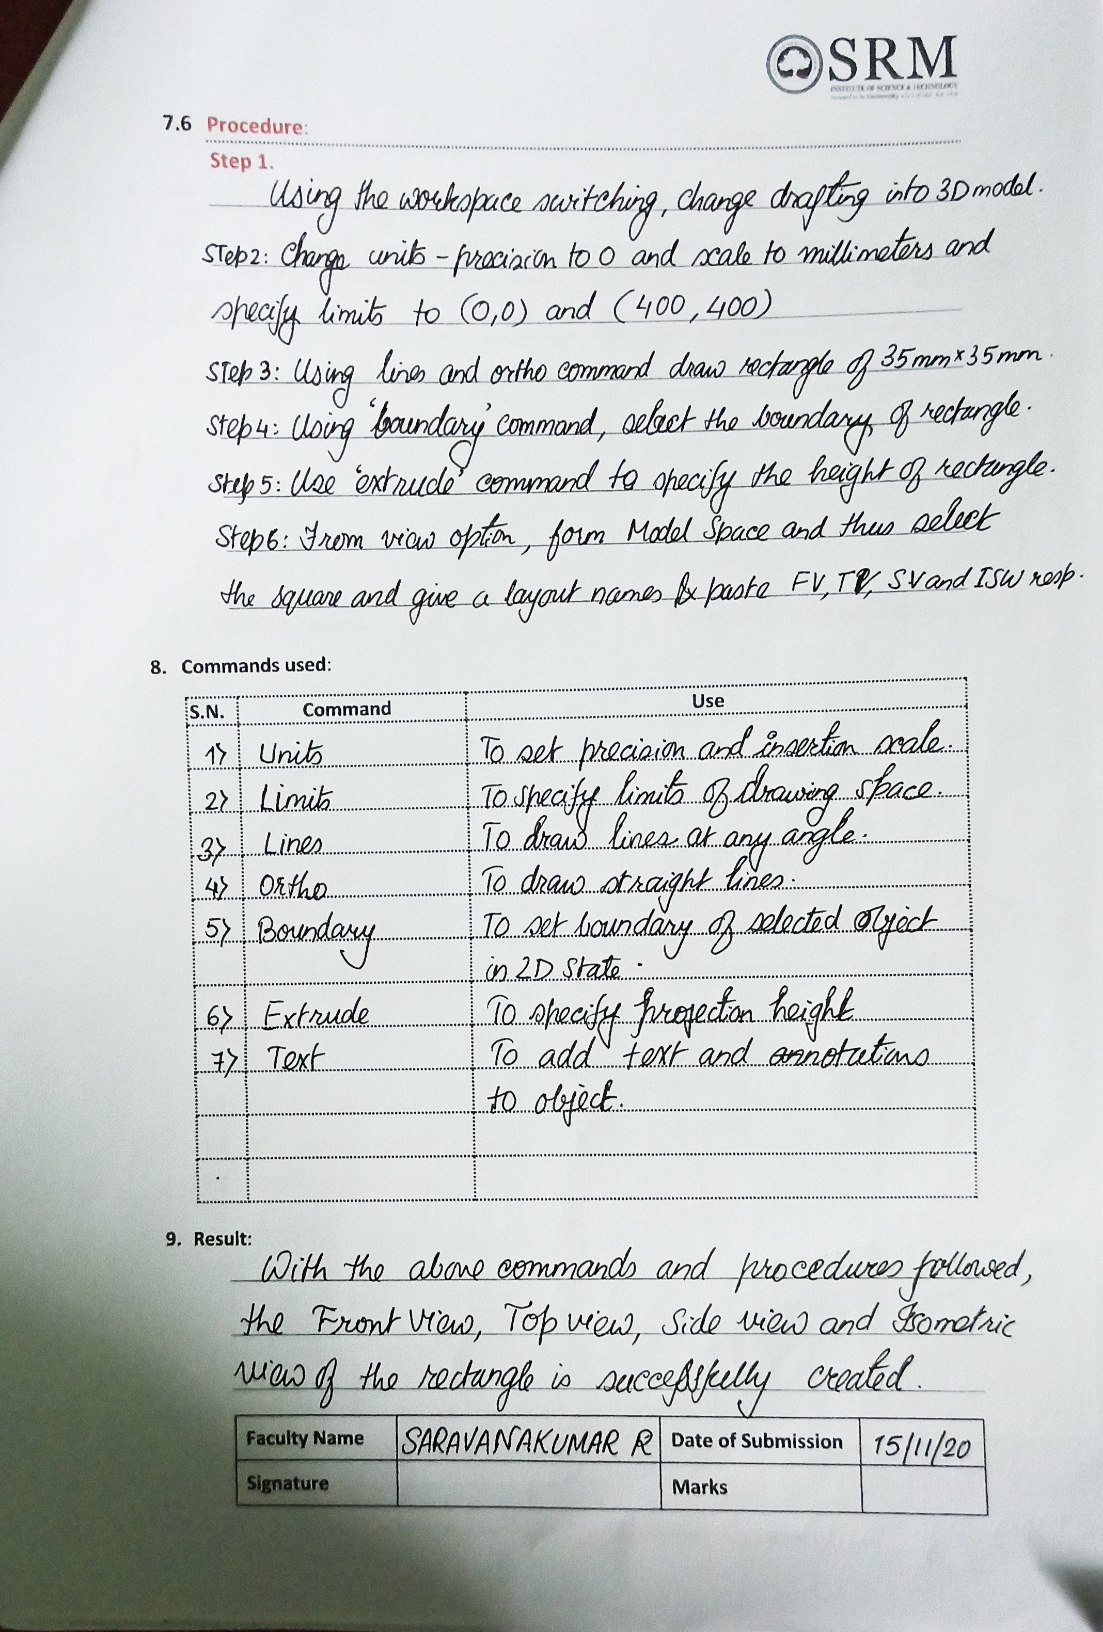 SRM
INSTITUTE OF SCIENCE & TECHNOLOGY
7.6 Procedure:
Step 1.
Using the workspace switching, change drafting into 3D model.
Step2: Change units - precision to 0 and scale to millimeters and
specify limits to (0,0) and (400,400)
Step 3: Using lines and ortho command draw rectangle of 35mm×35mm.
Step4: Using 'boundary' command, select the boundary of rectangle.
Step5: Use 'extrude' command to specify the height of rectangle.
Step6: From view option, form Model Space and thus select
the square and give a layout names & paste FV, TV, SV and ISW resp.
8. Commands used:
S.N. Command Use
1) Units To set precision and insertion scale.
2) Limits To specify limits of drawing space.
3) Lines To draw lines at any angle.
4) Ortho To draw straight lines.
5) Boundary To set boundary of selected object
in 2D state.
6) Extrude To specify projection height
7) Text To add text and annotations
to object.
9. Result:
With the above commands and procedures followed,
the Front View, Top view, Side view and Isometric
view of the rectangle is successfully created.
Faculty Name SARAVANAKUMAR R Date of Submission 15/11/20
Signature Marks